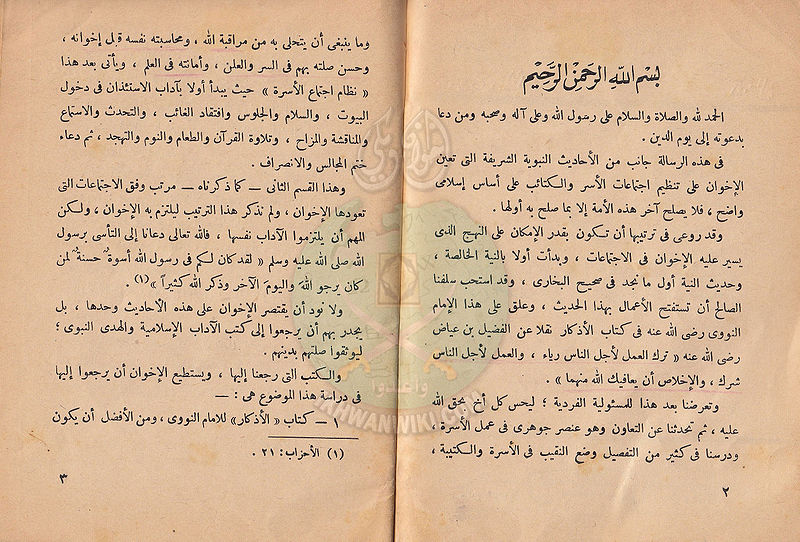 بسم الله الرحمن الرحيم
الحمد لله والصلاة والسلام على رسول الله وعلى آله وصحبه ومن دعا
بدعوته إلى يوم الدين .
فى هذه الرسالة جانب من الأحاديث النبوية الشريفة التى تعين
الإخوان على تنظيم اجتماعات الأسر والكتائب على أساس إسلامى
واضح ، فلا يصلح آخر هذه الأمة إلا بما صلح به أولها .
وقد روعى فى ترتيبها أن تكون بقدر الإمكان على النهج الذى
يسير عليه الإخوان فى الاجتماعات ، وبدأت أولا بالنية الخالصة ،
وحديث النية أول ما نجد فى صحيح البخارى ، وقد استحب سلفنا
الصالح أن تستفتح الأعمال بهذا الحديث ، وعلق على هذا الإمام
النووى رضى الله عنه فى كتاب الأذكار نقلا عن الفضيل بن عياض
رضى الله عنه « ترك العمل لأجل الناس رياء ، والعمل لأجل الناس
شرك ، والإخلاص أن يعافيك الله منهما » .
وتعرضنا بعد هذا للمسئولية الفردية ؛ ليحس كل أخ بحق الله
عليه ، ثم تحدثنا عن التعاون وهو عنصر جوهرى فى عمل الأسرة ،
ودرسنا فى كثير من التفصيل وضع النقيب فى الأسرة والكتيبة ،
٢
وما ينبغى أن يتحلى به من مراقبة الله ، ومحاسبته نفسه قبل إخوانه ،
وحسن صلته بهم فى السر والعلن ، وأمانته فى العلم ، ويأتى بعد هذا
« نظام اجتماع الأسرة » حيث يبدأ أولا بآداب الاستئذان فى دخول
البيوت ، والسلام والجلوس وافتقاد الغائب ، والتحدث والاستماع
والمناقشة والمزاح ، وتلاوة القرآن والطعام والنوم والتهجد ، ثم دعاء
ختم المجالس والانصراف .
وهذا القسم الثانى — كما ذكرناه — مرتب وفق الاجتماعات التى
تعودها الإخوان ، ولم نذكر هذا الترتيب ليلتزم به الإخوان ، ولكن
المهم أن يلتزموا الآداب نفسها ، فالله تعالى دعانا إلى التأسى برسول
الله صلى الله عليه وسلم « لقد كان لكم فى رسول الله أسوةٌ حسنةٌ لمن
كان يرجو اللهَ واليومَ الآخر وذكر الله كثيراً » (١) .
ولا نود أن يقتصر الإخوان على هذه الأحاديث وحدها ، بل
يجدر بهم أن يرجعوا إلى كتب الآداب الإسلامية والهدى النبوى ؛
ليوثقوا صلتهم بدينهم .
والكتب التى رجعنا إليها ، ويستطيع الإخوان أن يرجعوا إليها
فى دراسة هذا الموضوع هى : —
١ — كتاب « الأذكار » للامام النووى ، ومن الأفضل أن يكون
(١) الأحزاب : ٢١ .
٣
IKHWANWIKI.COM